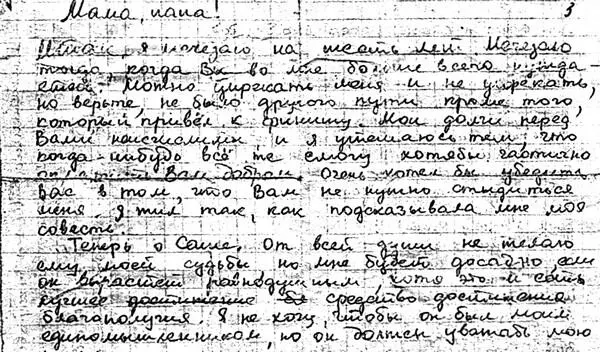 Мама, папа! 3
Итак, я исчезаю на шесть лет. Исчезаю
тогда, когда Вы во мне больше всего нуждае-
тесь. Можно упрекать меня и не упрекать,
но верьте, не было другого пути, кроме того,
который привёл к финишу. Мои долги перед
Вами неисчислимы, и я утешаюсь тем, что
когда-нибудь всё же смогу хотябы частично
Вам добром. Очень хотел бы убедить
Вас в том, что Вам не нужно стыдиться
меня. Я жил так, как подсказывала мне моя
совесть.
Теперь о Саше. От всей души не желаю
ему моей судьбы, но мне будет досадно если
он вырастет равнодушным, хотя это и есть
лучшее достижение средство достижения
благополучия. Я не хочу, чтобы он был моим
единомышленником, но он должен уважать мою